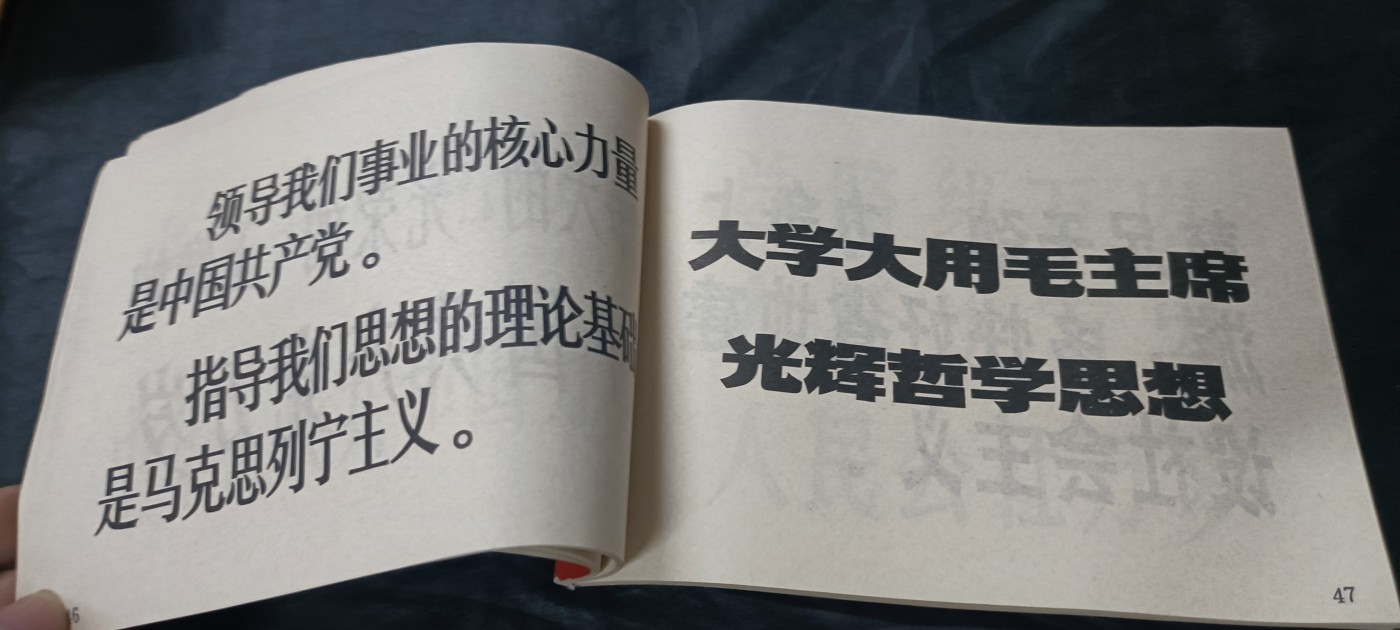 领导我们事业的核心力量
是中国共产党。
指导我们思想的理论基础
是马克思列宁主义。
大学大用毛主席
光辉哲学思想
47